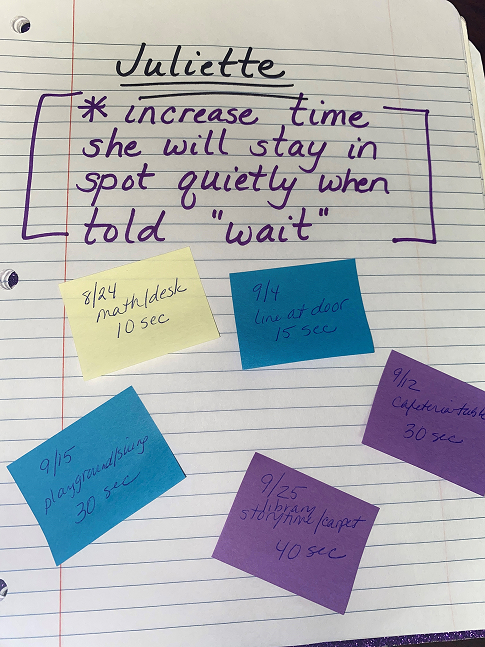 Juliette
* increase time
she will stay in
spot quietly when
told "wait"
8/24
math/desk
10 sec
9/4
line at door
15 sec
9/12
cafeteria table
30 sec
9/15
playground/swing
30 sec
9/25
library
storytime/carpet
40 sec